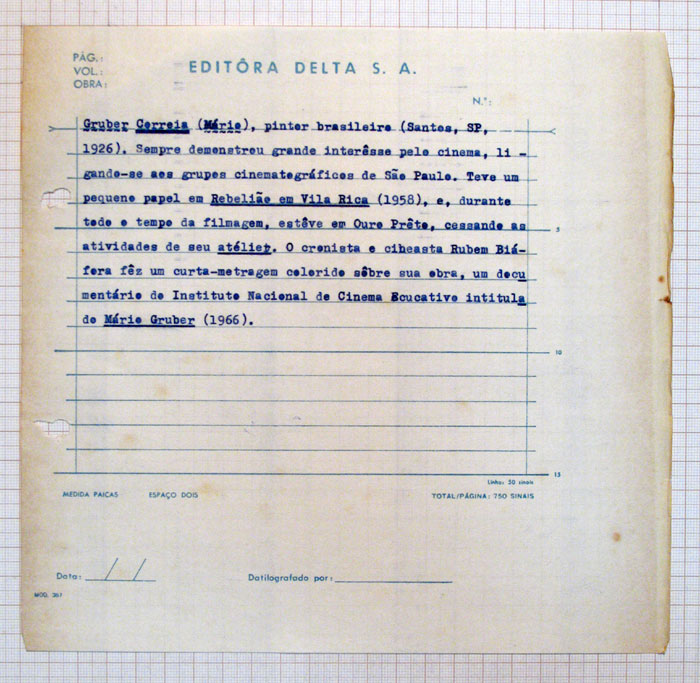 PÁG.:
VOL.:
OBRA:
EDITÔRA DELTA S. A.
N.º:
Gruber Correia (Mário), pintor brasileiro (Santos, SP,
1926). Sempre demonstrou grande interêsse pelo cinema, li -
gando-se aos grupos cinematográficos de São Paulo. Teve um
pequeno papel em Rebelião em Vila Rica (1958), e, durante
todo o tempo da filmagem, estêve em Ouro Prêto, cessando as
atividades de seu atélier. O cronista e cineasta Rubem Biá-
fora fêz um curta-metragem colorido sôbre sua obra, um docu
mentário do Instituto Nacional de Cinema Ecucativo intitula
do Mário Gruber (1966).
5
10
15
Linha: 50 sinais
MEDIDA PAICAS
ESPAÇO DOIS
TOTAL/PÁGINA: 750 SINAIS
Data: / /
Datilografado por:
MOD. 361